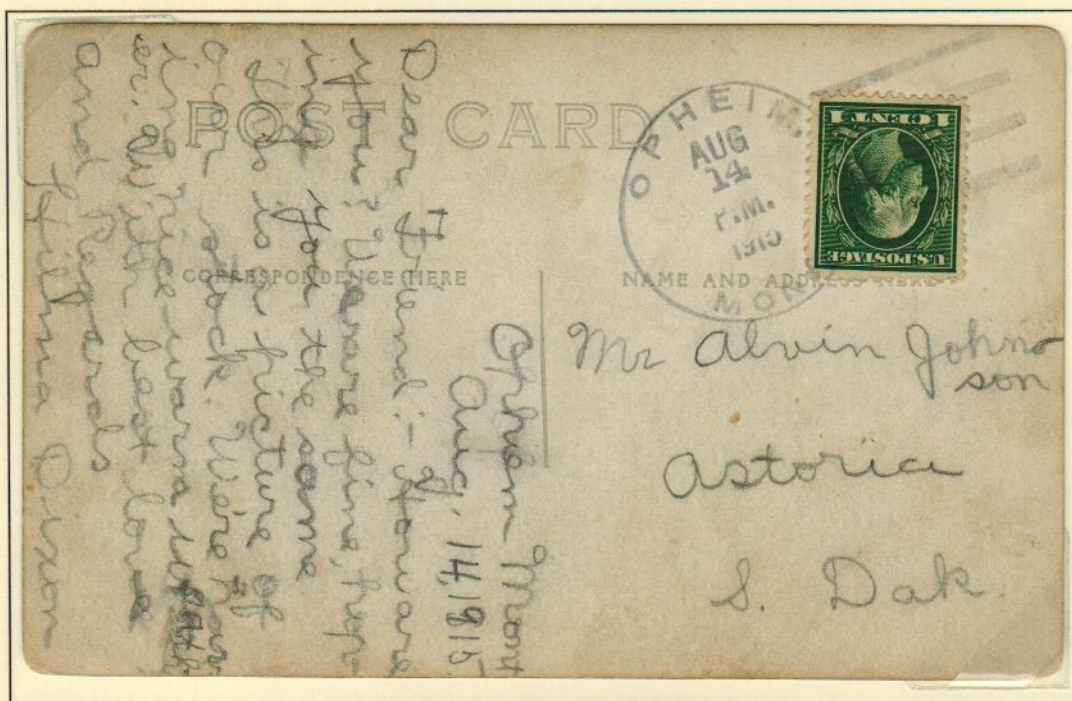 POST CARD
OPHEIM.
AUG
14
P.M.
1915
MON
U.S. POSTAGE
1 CENT 1
CORRESPONDENCE HERE
NAME AND ADDRESS HERE
Ophiem Mont
Aug, 14, 1915
Dear Friend:- Howare
you? We are fine, hop-
ing you the same
This is a picture of
our stock. We're hav
ing nice warm
with best love
and Regards
Hilma
Mr Alvin Johno
son
Astoria
S. Dak.